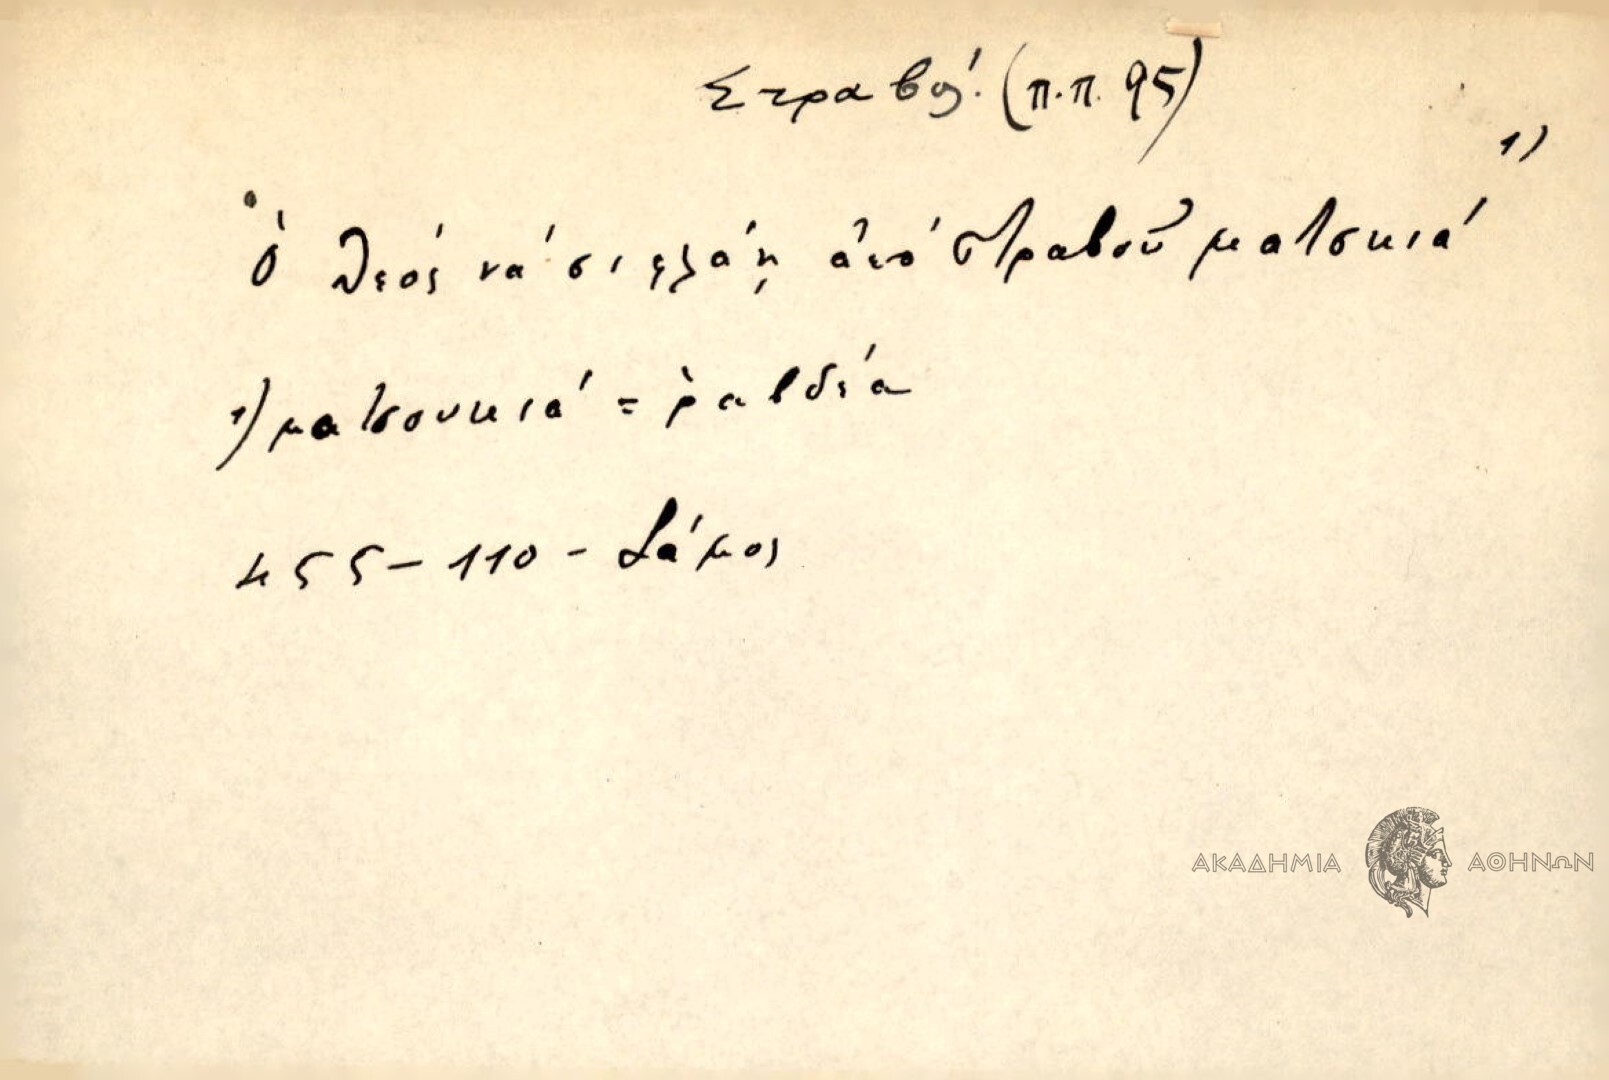 Στραβός. (π.π. 95)
Ὁ Θεός νά σι φλάῃ ἀπό στραβοῦ ματσκιά 1)
1) ματσουκιά = ραβδέα
455 - 110 - Σάμος
ΑΚΑΔΗΜΙΑ ΑΘΗΝΩΝ